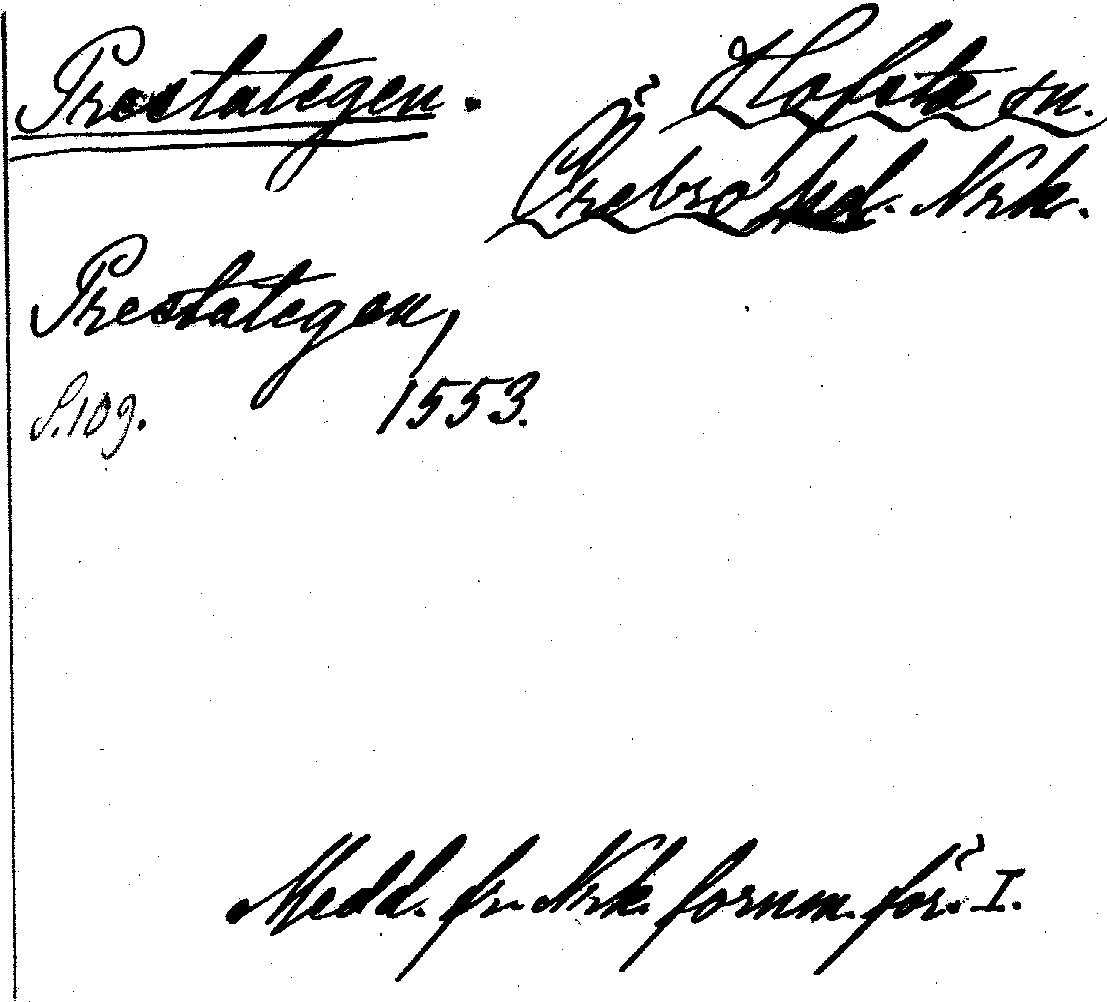 Prestategen.
Hofsta sn.
Örebro hd. Nrk.
Prestategen,
S. 109. 1553.
Medd. fr. Nrk. fornm. för. I.